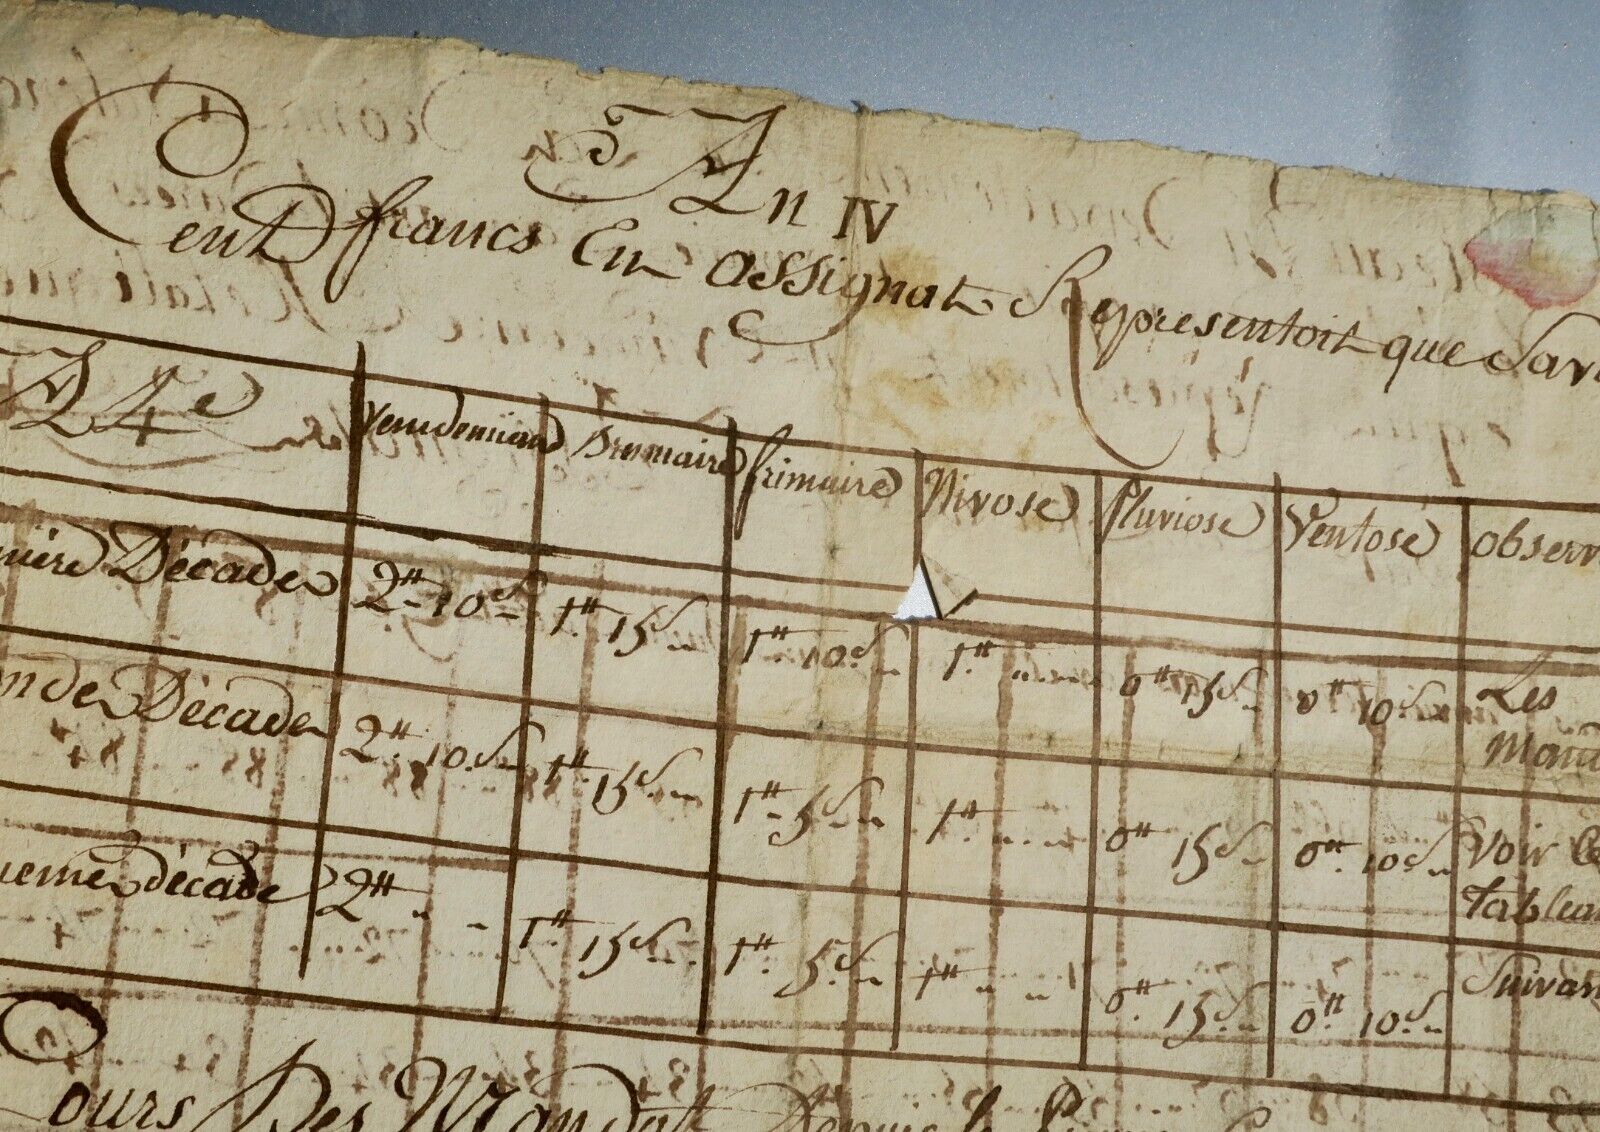 An IV
Cent francs En assignat Representoit que Sav
A 4e Vendemiaire Brumaire frimaire Nivose Pluviose Ventose observ
miere Decade 2tt 10s 1tt 15s 1tt 10s 1tt 0tt 15s 0tt 10s Les
Man
onde Décade 2tt 10s 1tt 15s 1tt 5s 1tt 0tt 15s 0tt 10s Voir le
tableau
ieme décade 2tt 1tt 15s 1tt 5s 1tt 0tt 15s 0tt 10s Suivan
Cours Des Mandat Depuis le